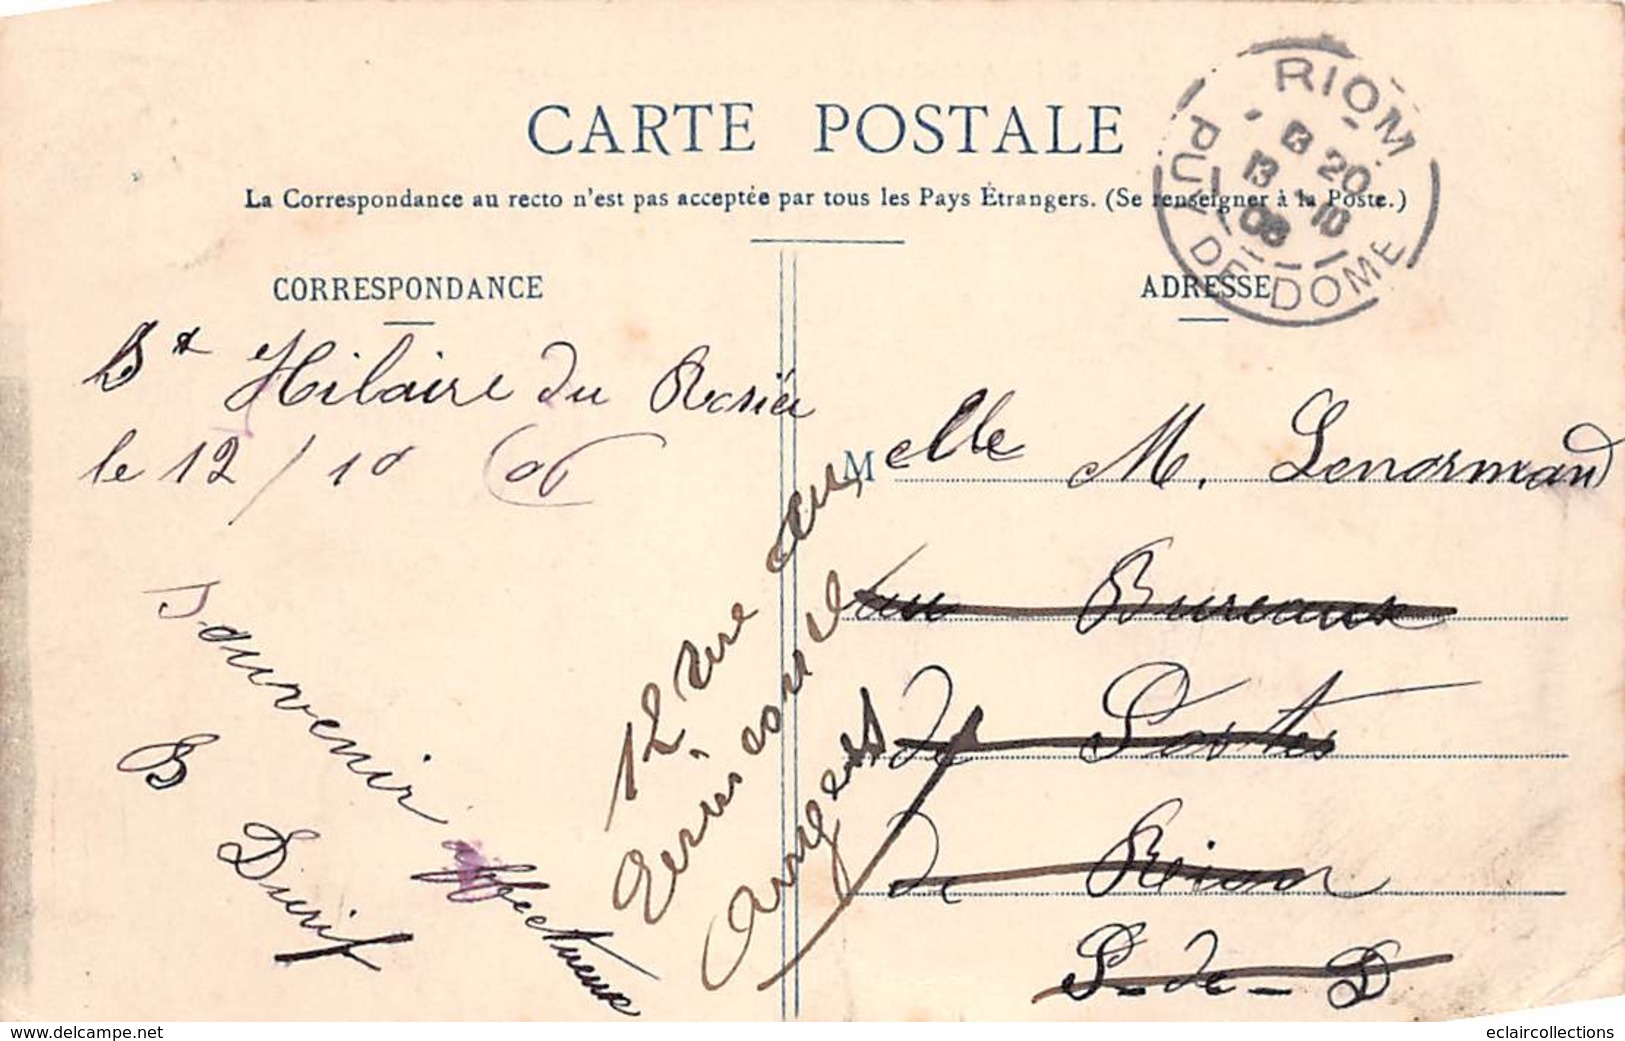 CARTE POSTALE
La Correspondance au recto n'est pas acceptée par tous les Pays Étrangers. (Se renseigner à la Poste.)
RIOM
PUY-DE-DOME
6 20
13 - 10
06
CORRESPONDANCE
St Hilaire du Rosier
le 12/10 06
Souvenir affectueux
B Durif
12, rue du
Angers
ADRESSE
Melle M. Lenormand
au Bureaux
de Postes
de Riom
P-de-D
www.delcampe.net
eclaircollections